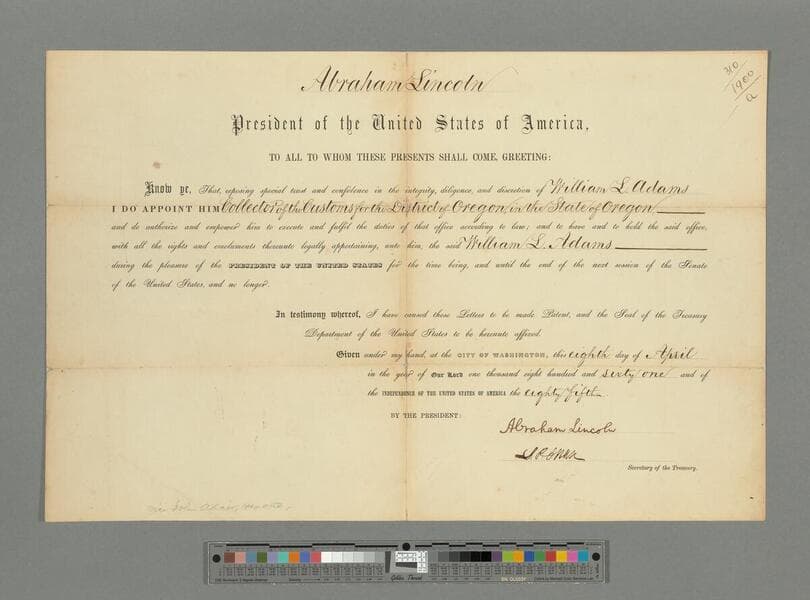 Abraham Lincoln
310
1900
a
President of the United States of America,
TO ALL TO WHOM THESE PRESENTS SHALL COME, GREETING:
Know ye, That, reposing special trust and confidence in the integrity, diligence, and discretion of William L Adams
I DO APPOINT HIM Collector of the Customs for the District of Oregon, in the State of Oregon
and do authorize and empower him to execute and fulfil the duties of that office according to law; and to have and to hold the said office,
with all the rights and emoluments thereunto legally appertaining, unto him, the said William L. Adams
during the pleasure of the PRESIDENT OF THE UNITED STATES for the time being, and until the end of the next session of the Senate
of the United States, and no longer.
In testimony whereof, I have caused these Letters to be made Patent, and the Seal of the Treasury
Department of the United States to be hereunto affixed.
Given under my hand, at the CITY OF WASHINGTON, this eighth day of April
in the year of Our Lord one thousand eight hundred and sixty one and of
the INDEPENDENCE OF THE UNITED STATES OF AMERICA the eighty fifth
BY THE PRESIDENT:
Abraham Lincoln
Secretary of the Treasury.
John Adair,
Golden Thread